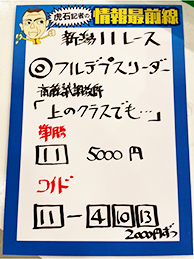 虎石記者の
情報最前線
新潟11レース
◎フルデプスリーダー
斎藤誠調教師
「上のクラスでも…」
単勝
11 5000円
ワイド
11-4 10 13
2000円ずつ